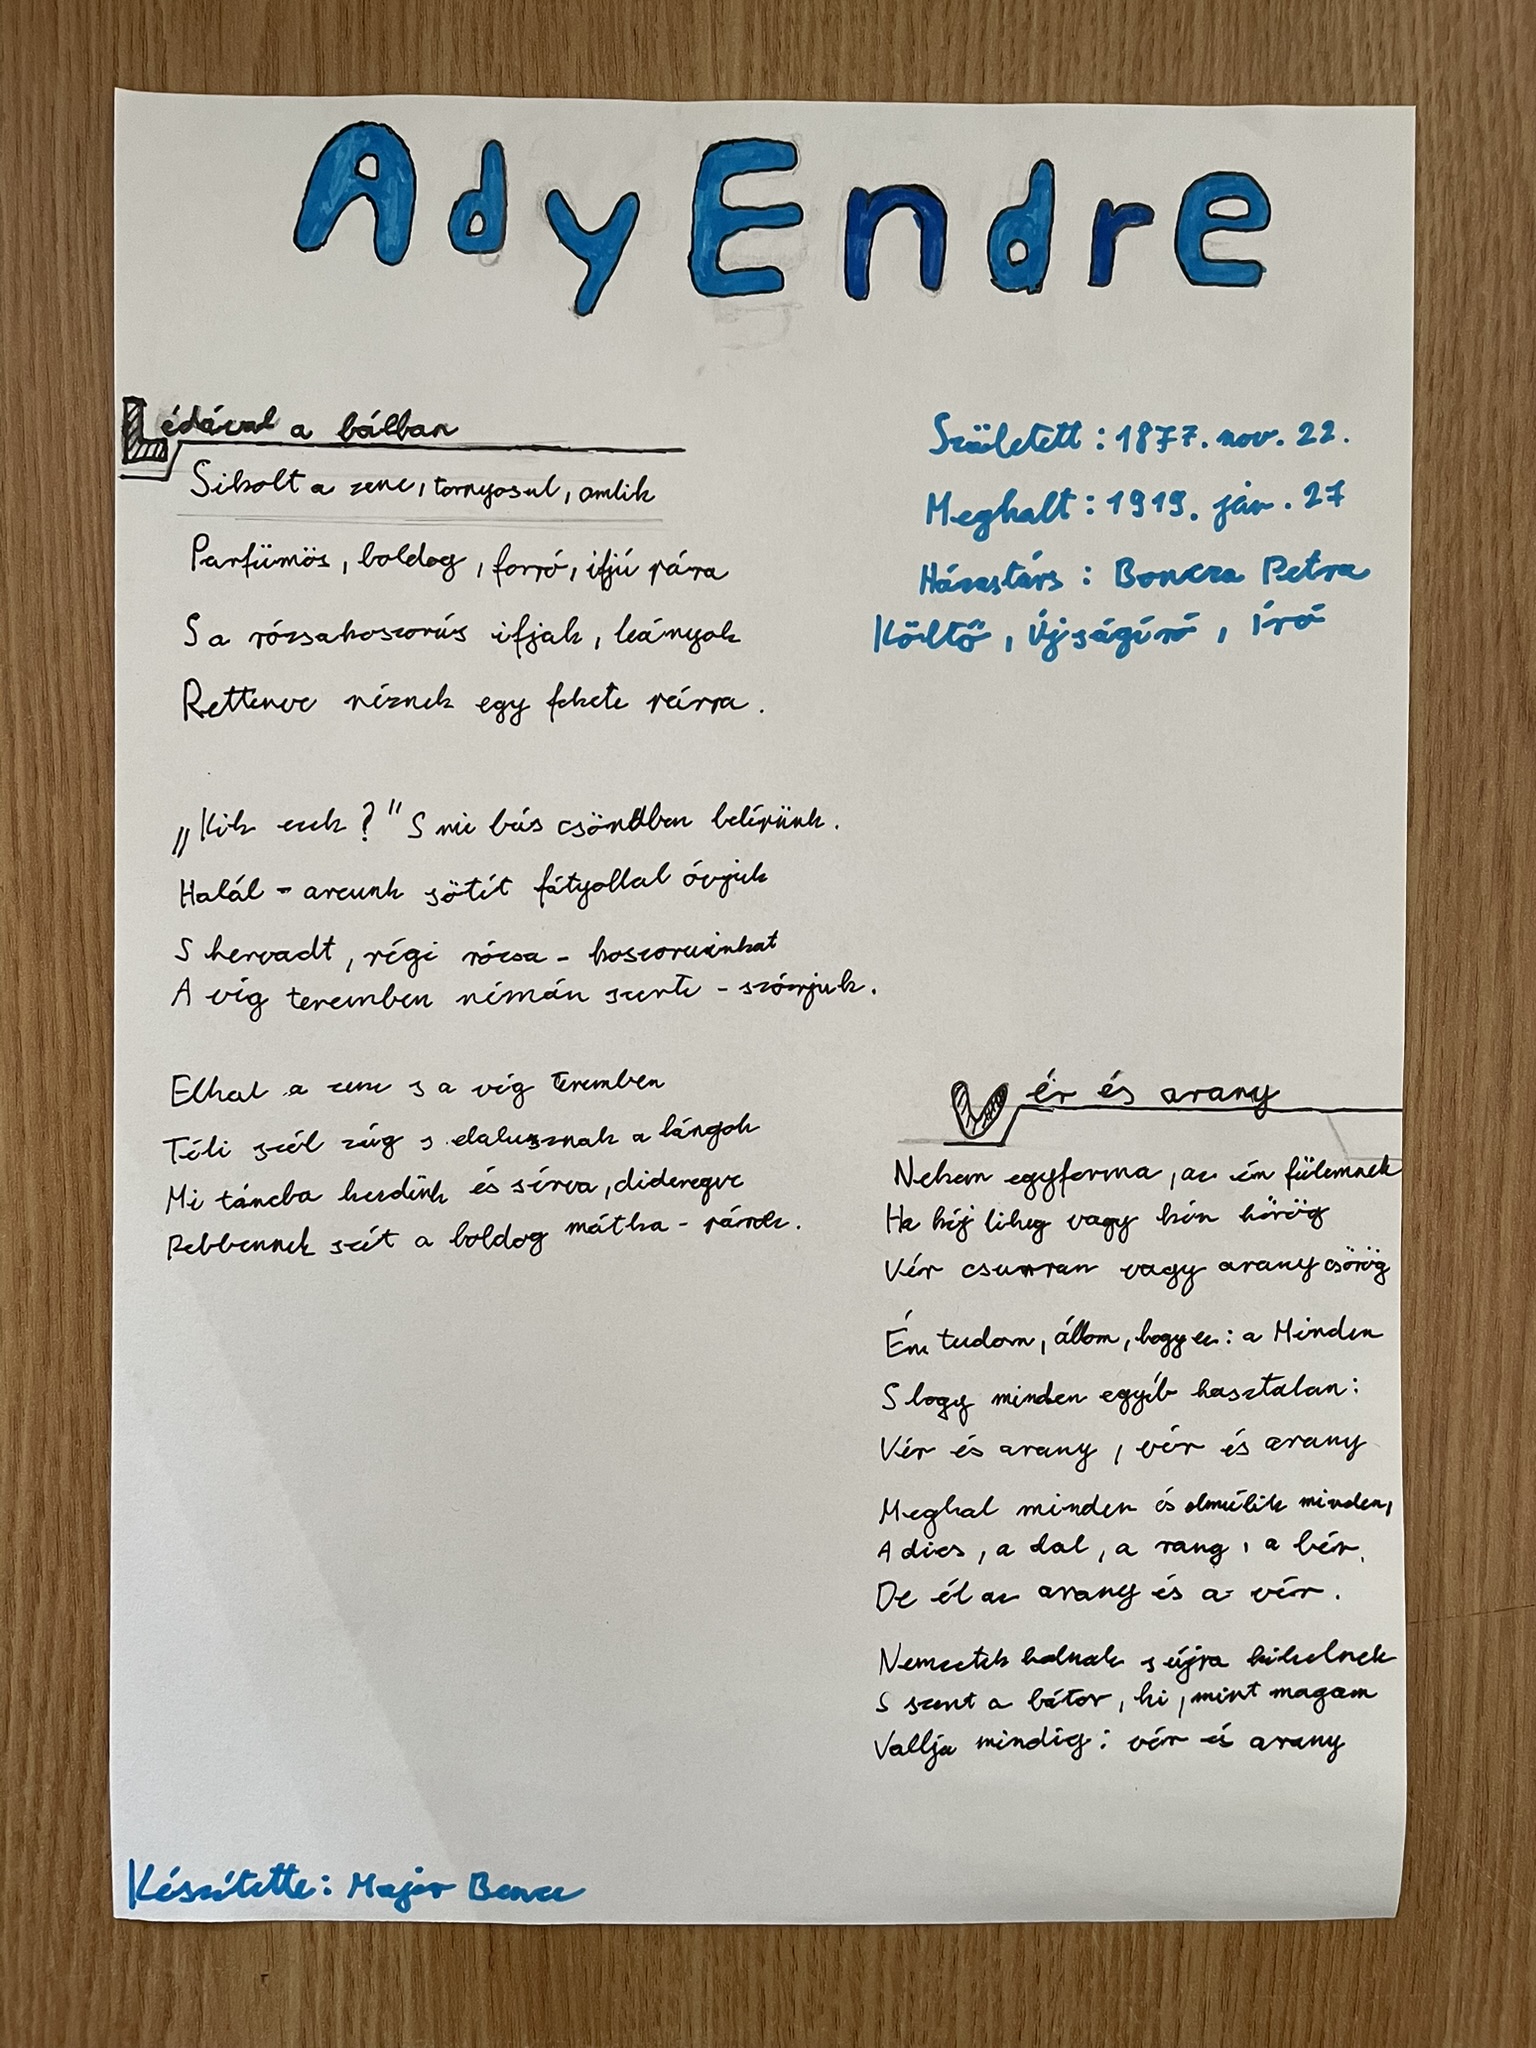 Ady Endre
Lédával a bálban
Sikolt a zene, tornyosul, omlik
Parfümös, boldog, forró, ifjú pára
S a rózsakoszorús ifjak, leányok
Rettenve néznek egy fekete párra.
„Kik ezek?" S mi bús csöndben belépünk.
Halál - arcunk sötét fátyollal óvjuk
S hervadt, régi rózsa - koszoruinkat
A víg teremben némán szerte - szórjuk.
Elhal a zene s a víg teremben
Téli szél zúg s elalusznak a lángok
Mi táncba kezdünk és sírva, dideregve
Rebbennek szét a boldog mátka - párok.
Született: 1877. nov. 22.
Meghalt: 1919. ján. 27
Házastárs: Boncza Petra
Költő, Újságíró, író
Vér és arany
Nekem egyforma, az én fülemnek
Ha kéj liheg vagy kín hörög
Vér csurran vagy arany csörög
Én tudom, állom, hogy ez: a Minden
S hogy minden egyéb hasztalan:
Vér és arany, vér és arany
Meghal minden és elmúlik minden,
A dics, a dal, a rang, a bér.
De él az arany és a vér.
Nemzetek halnak s újra kikelnek
S szent a bátor, ki, mint magam
Vallja mindig: vér és arany
Készítette: Major Bence